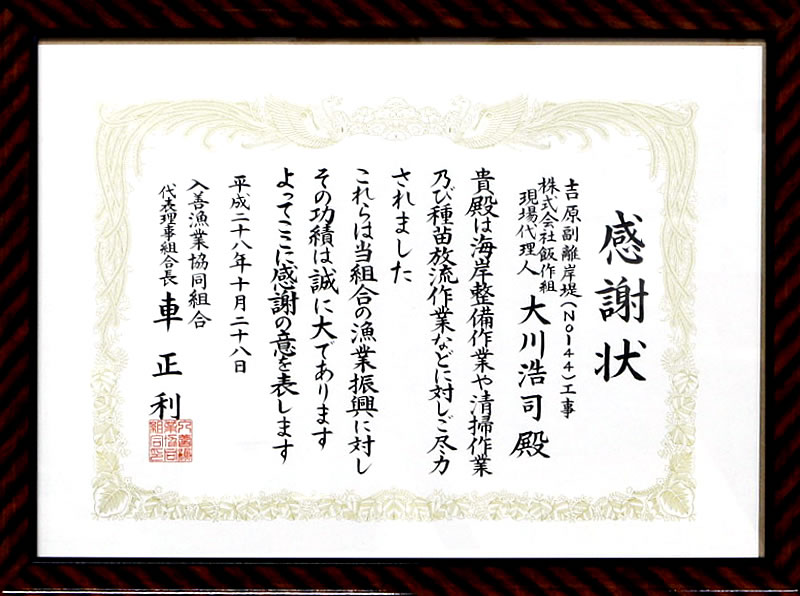 感謝状
吉原副離岸堤（NO144）工事
株式会社飯作組
現場代理人
大川浩司 殿
貴殿は海岸整備作業や清掃作業
乃び種苗放流作業などに対しご尽力
されました
これらは当組合の漁業振興に対し
その功績は誠に大であります
よってここに感謝の意を表します
平成二十八年十月二十八日
入善漁業協同組合
代表理事組合長 車 正利